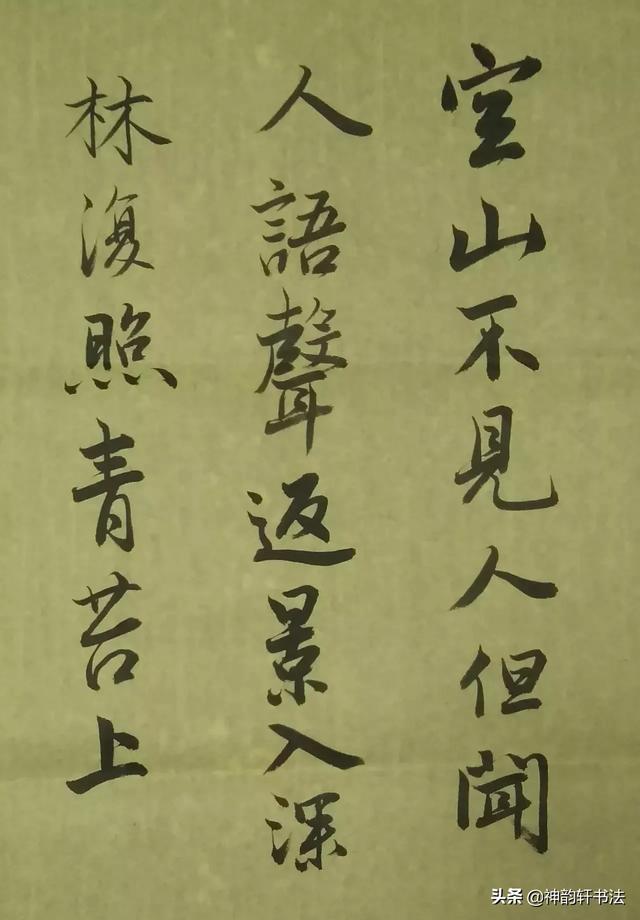 空山不見人但聞
人語聲返景入深
林復照青苔上
头条 @神韵轩书法